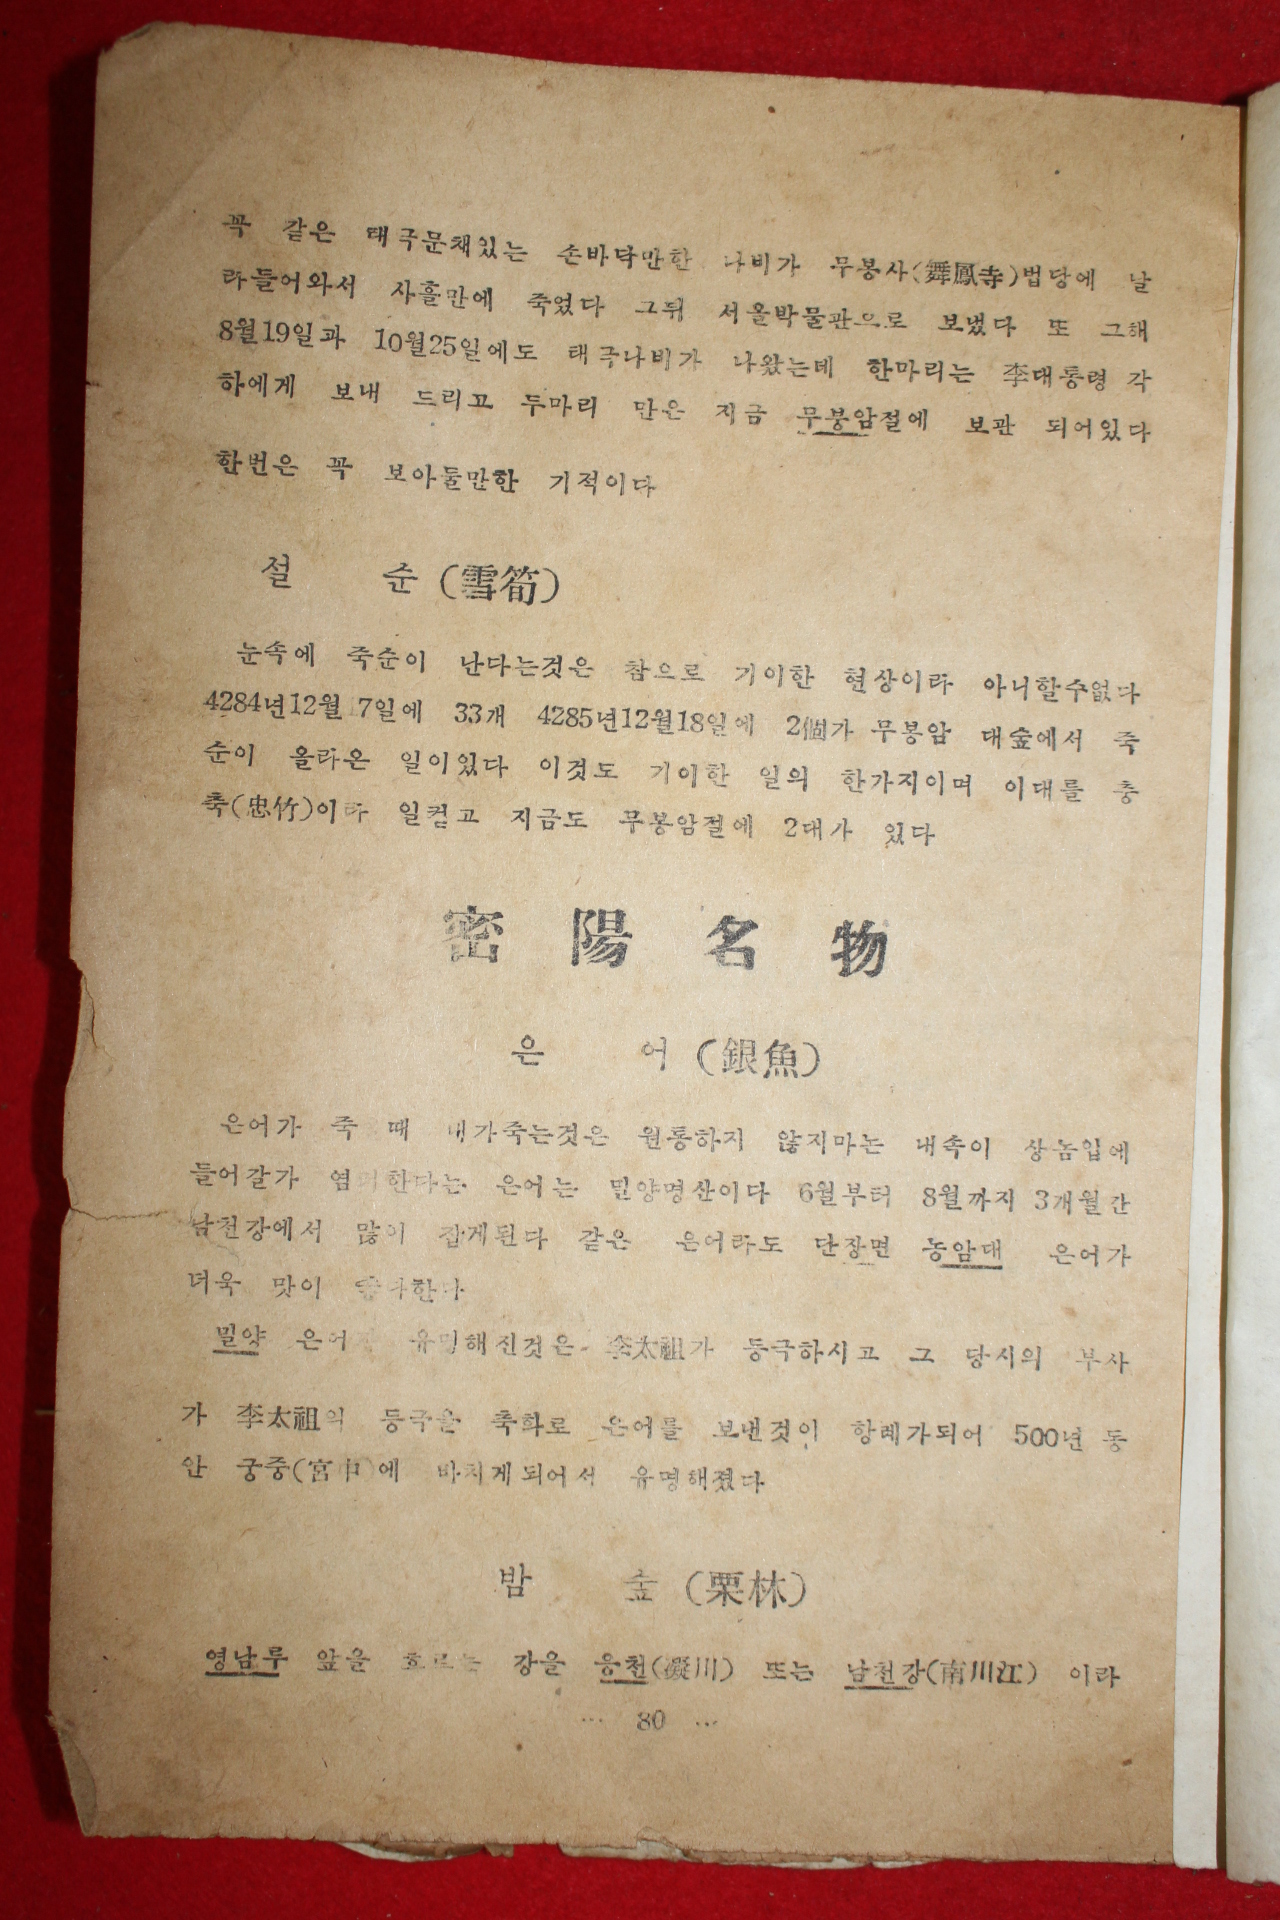 꼭 같은 태극문채있는 손바닥만한 나비가 무봉사(舞鳳寺)법당에 날
라들어와서 사흘만에 죽었다 그뒤 서울박물관으로 보냈다 또 그해
8월19일과 10월25일에도 태극나비가 나왔는데 한마리는 李대통령 각
하에게 보내 드리고 두마리 만은 지금 무봉암절에 보관 되어있다
한번은 꼭 보아둘만한 기적이다
설 순 (雪筍)
눈속에 죽순이 난다는것은 참으로 기이한 현상이라 아니할수없다
4284년12월17일에 33개 4285년12월18일에 2個가 무봉암 대숲에서 죽
순이 올라온 일이있다 이것도 기이한 일의 한가지이며 이대를 충
축(忠竹)이라 일컫고 지금도 무봉암절에 2대가 있다
密陽名物
은 어 (銀魚)
은어가 죽 때 내가죽는것은 원통하지 않지마는 내속이 상놈입에
들어갈가 염려한다는 은어는 밀양명산이다 6월부터 8월까지 3개월간
남천강에서 많이 잡게된다 같은 은어라도 단장면 농암대 은어가
더욱 맛이
밀양 은어 유명해진것은 李太祖가 등극하시고 그 당시의 부사
가 李太祖의 등극을 축하로 은어를 보낸것이 항례가되어 500년 동
안 궁중(宮中)에 바치게되어서 유명해졌다
밤 숲 (栗林)
영남루 앞을 흐르는 강을 응천(凝川) 또는 남천강(南川江) 이라
… 80 …